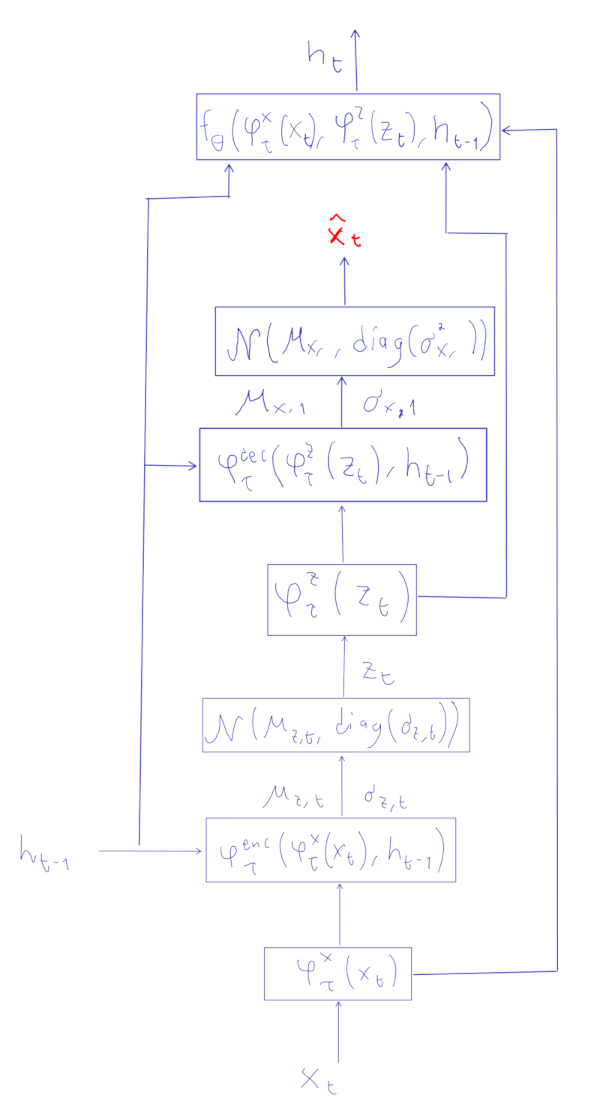 h_t
f_θ(φ_τ^x(x_t), φ_τ^z(z_t), h_{t-1})
x̂_t
N(μ_{x,}, diag(σ²_{x,}))
μ_{x,1} σ_{x,1}
φ_τ^{dec}(φ_τ^z(z_t), h_{t-1})
φ_τ^z(z_t)
z_t
N(μ_{z,t}, diag(σ_{z,t}))
μ_{z,t} σ_{z,t}
h_{t-1} φ_τ^{enc}(φ_τ^x(x_t), h_{t-1})
φ_τ^x(x_t)
x_t